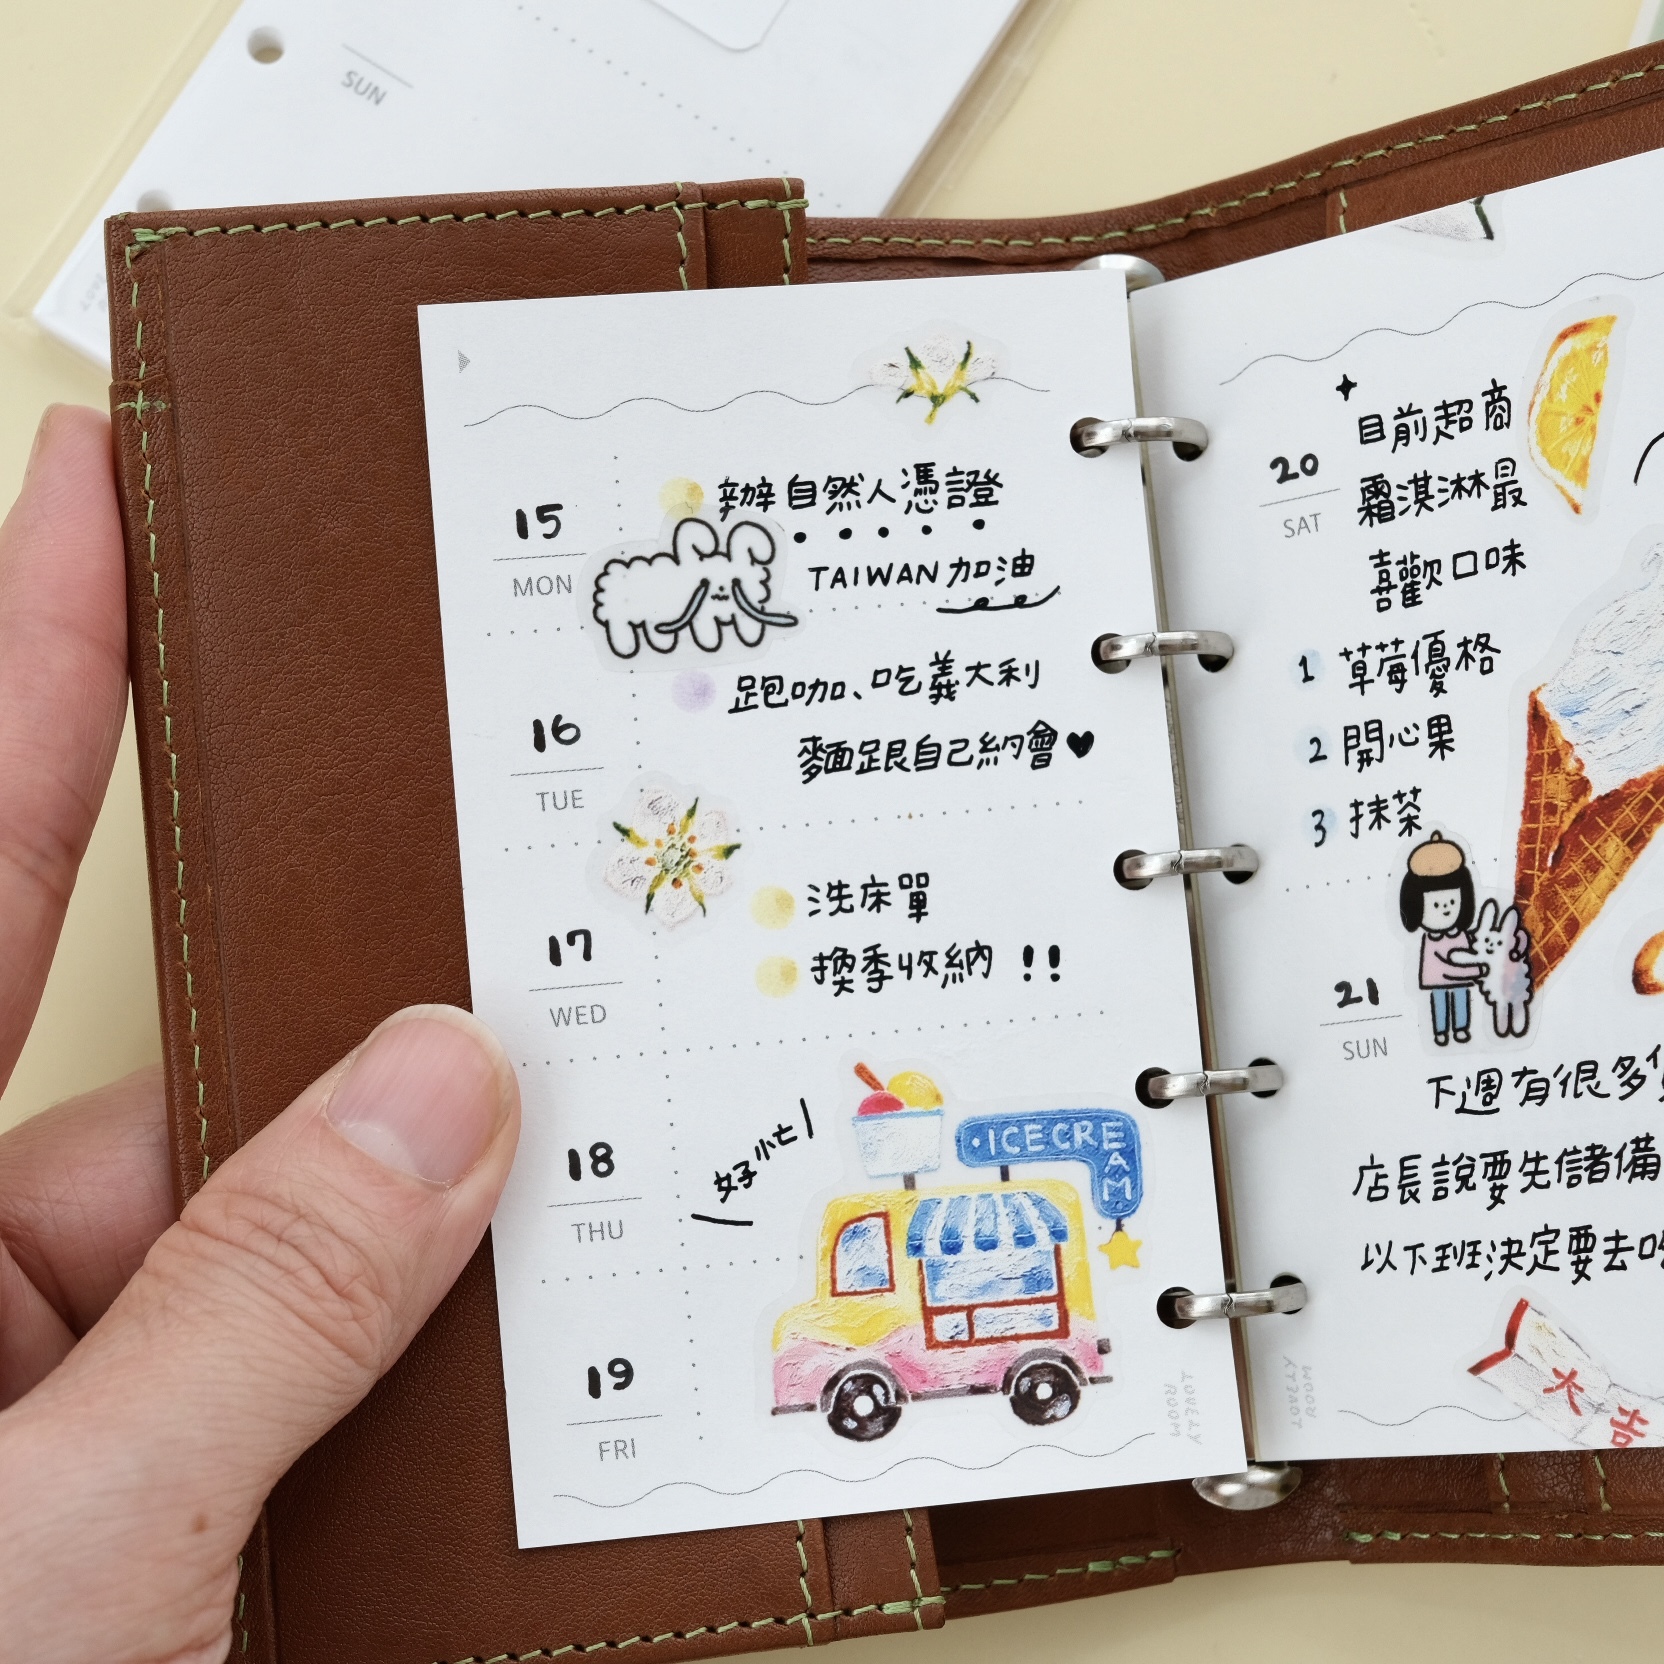 SUN
15
MON
辦自然人憑證
TAIWAN加油
16
TUE
跑咖、吃義大利
麵跟自己約會♥
17
WED
洗床單
換季收納 !!
18
THU
好忙
ICE CREAM
19
FRI
LOVELY
ROOM
20
SAT
目前超商
霜淇淋最
喜歡口味
1 草莓優格
2 開心果
3 抹茶
21
SUN
下週有很多
店長說要先儲備
以下班決定要去吃
LOVELY
ROOM
大
吉